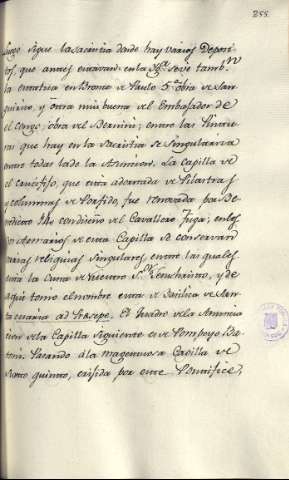 255.
Luego sigue la sacristia donde hay varios Deposi
tos, que antes estavan en la Yg.ª se ve tamb.n
la estatua en Bronce de Paulo 5.º obra de San
quirico, y otra mui buena del Embajador de
el Congo, obra del Bernini, entre las Pintu
ras que hay en la Sacristia se singulariza
entre todas la de la Anuncion. La capilla de
el crucifijo, que está adornada de Pilastras
y columnas de Porfido, fue renovada por Be
nedicto con diseño del Cavallero Fuga: en los
de esta Capilla se conservan
varias reliquias singulares entre las quales
está la Cuna de nuestro S.r Jesuchristo, y de
aqui tomo el nombre esta de Basilica de San
ta maria ad Presepe. El quadro de la Anuncia
cion de la Capilla siguiente es de Pompeyo Ba
toni. Pasando á la magestuosa Capilla de
Sixto quinto, erijida por este Pontifice,